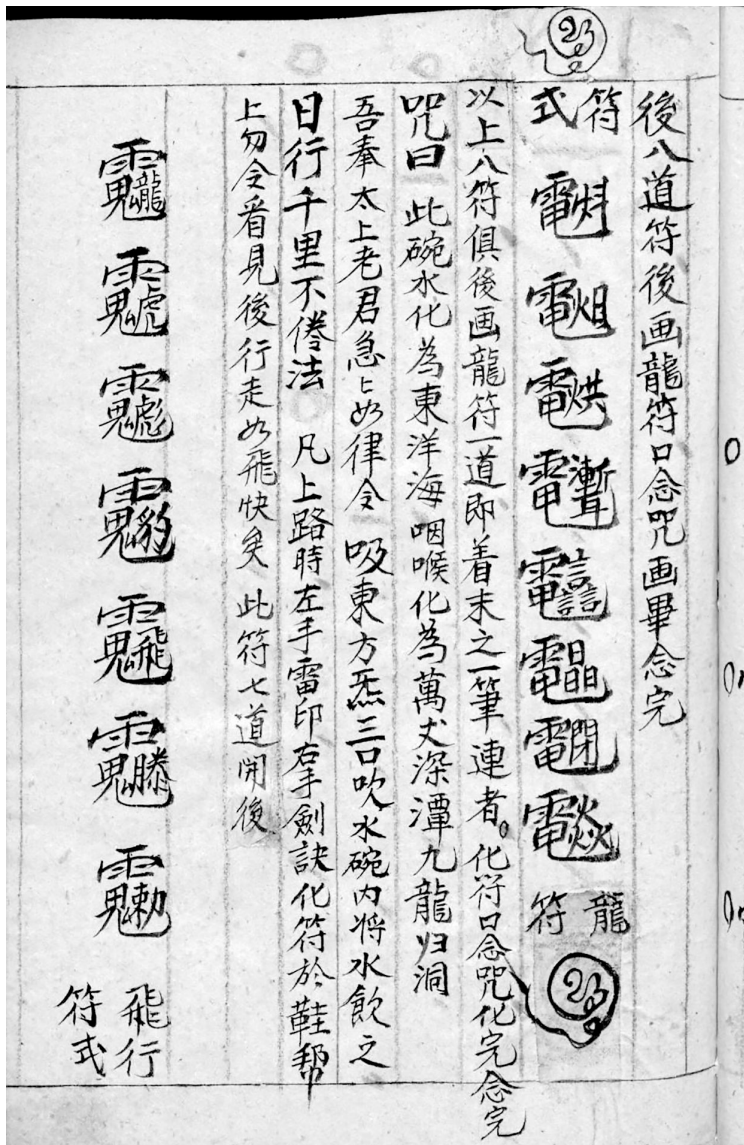 後八道符後画龍符口念咒画畢念完
符式
龍符
以上八符俱後画龍符一道即着末之一筆連者。化符口念咒化完念完
咒曰 此碗水化為東洋海咽喉化為萬丈深潭九龍归洞
吾奉太上老君急〻如律令 吸東方炁三口吹水碗内将水飲之
日行千里不倦法 凡上路時左手雷印右手劍訣化符於鞋帮
上勿令看見後行走如飛快矣 此符七道開後
飛行符式